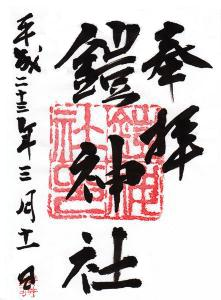 奉拝
鎧神社
平成二十三年三月十一日
鎧神社之印